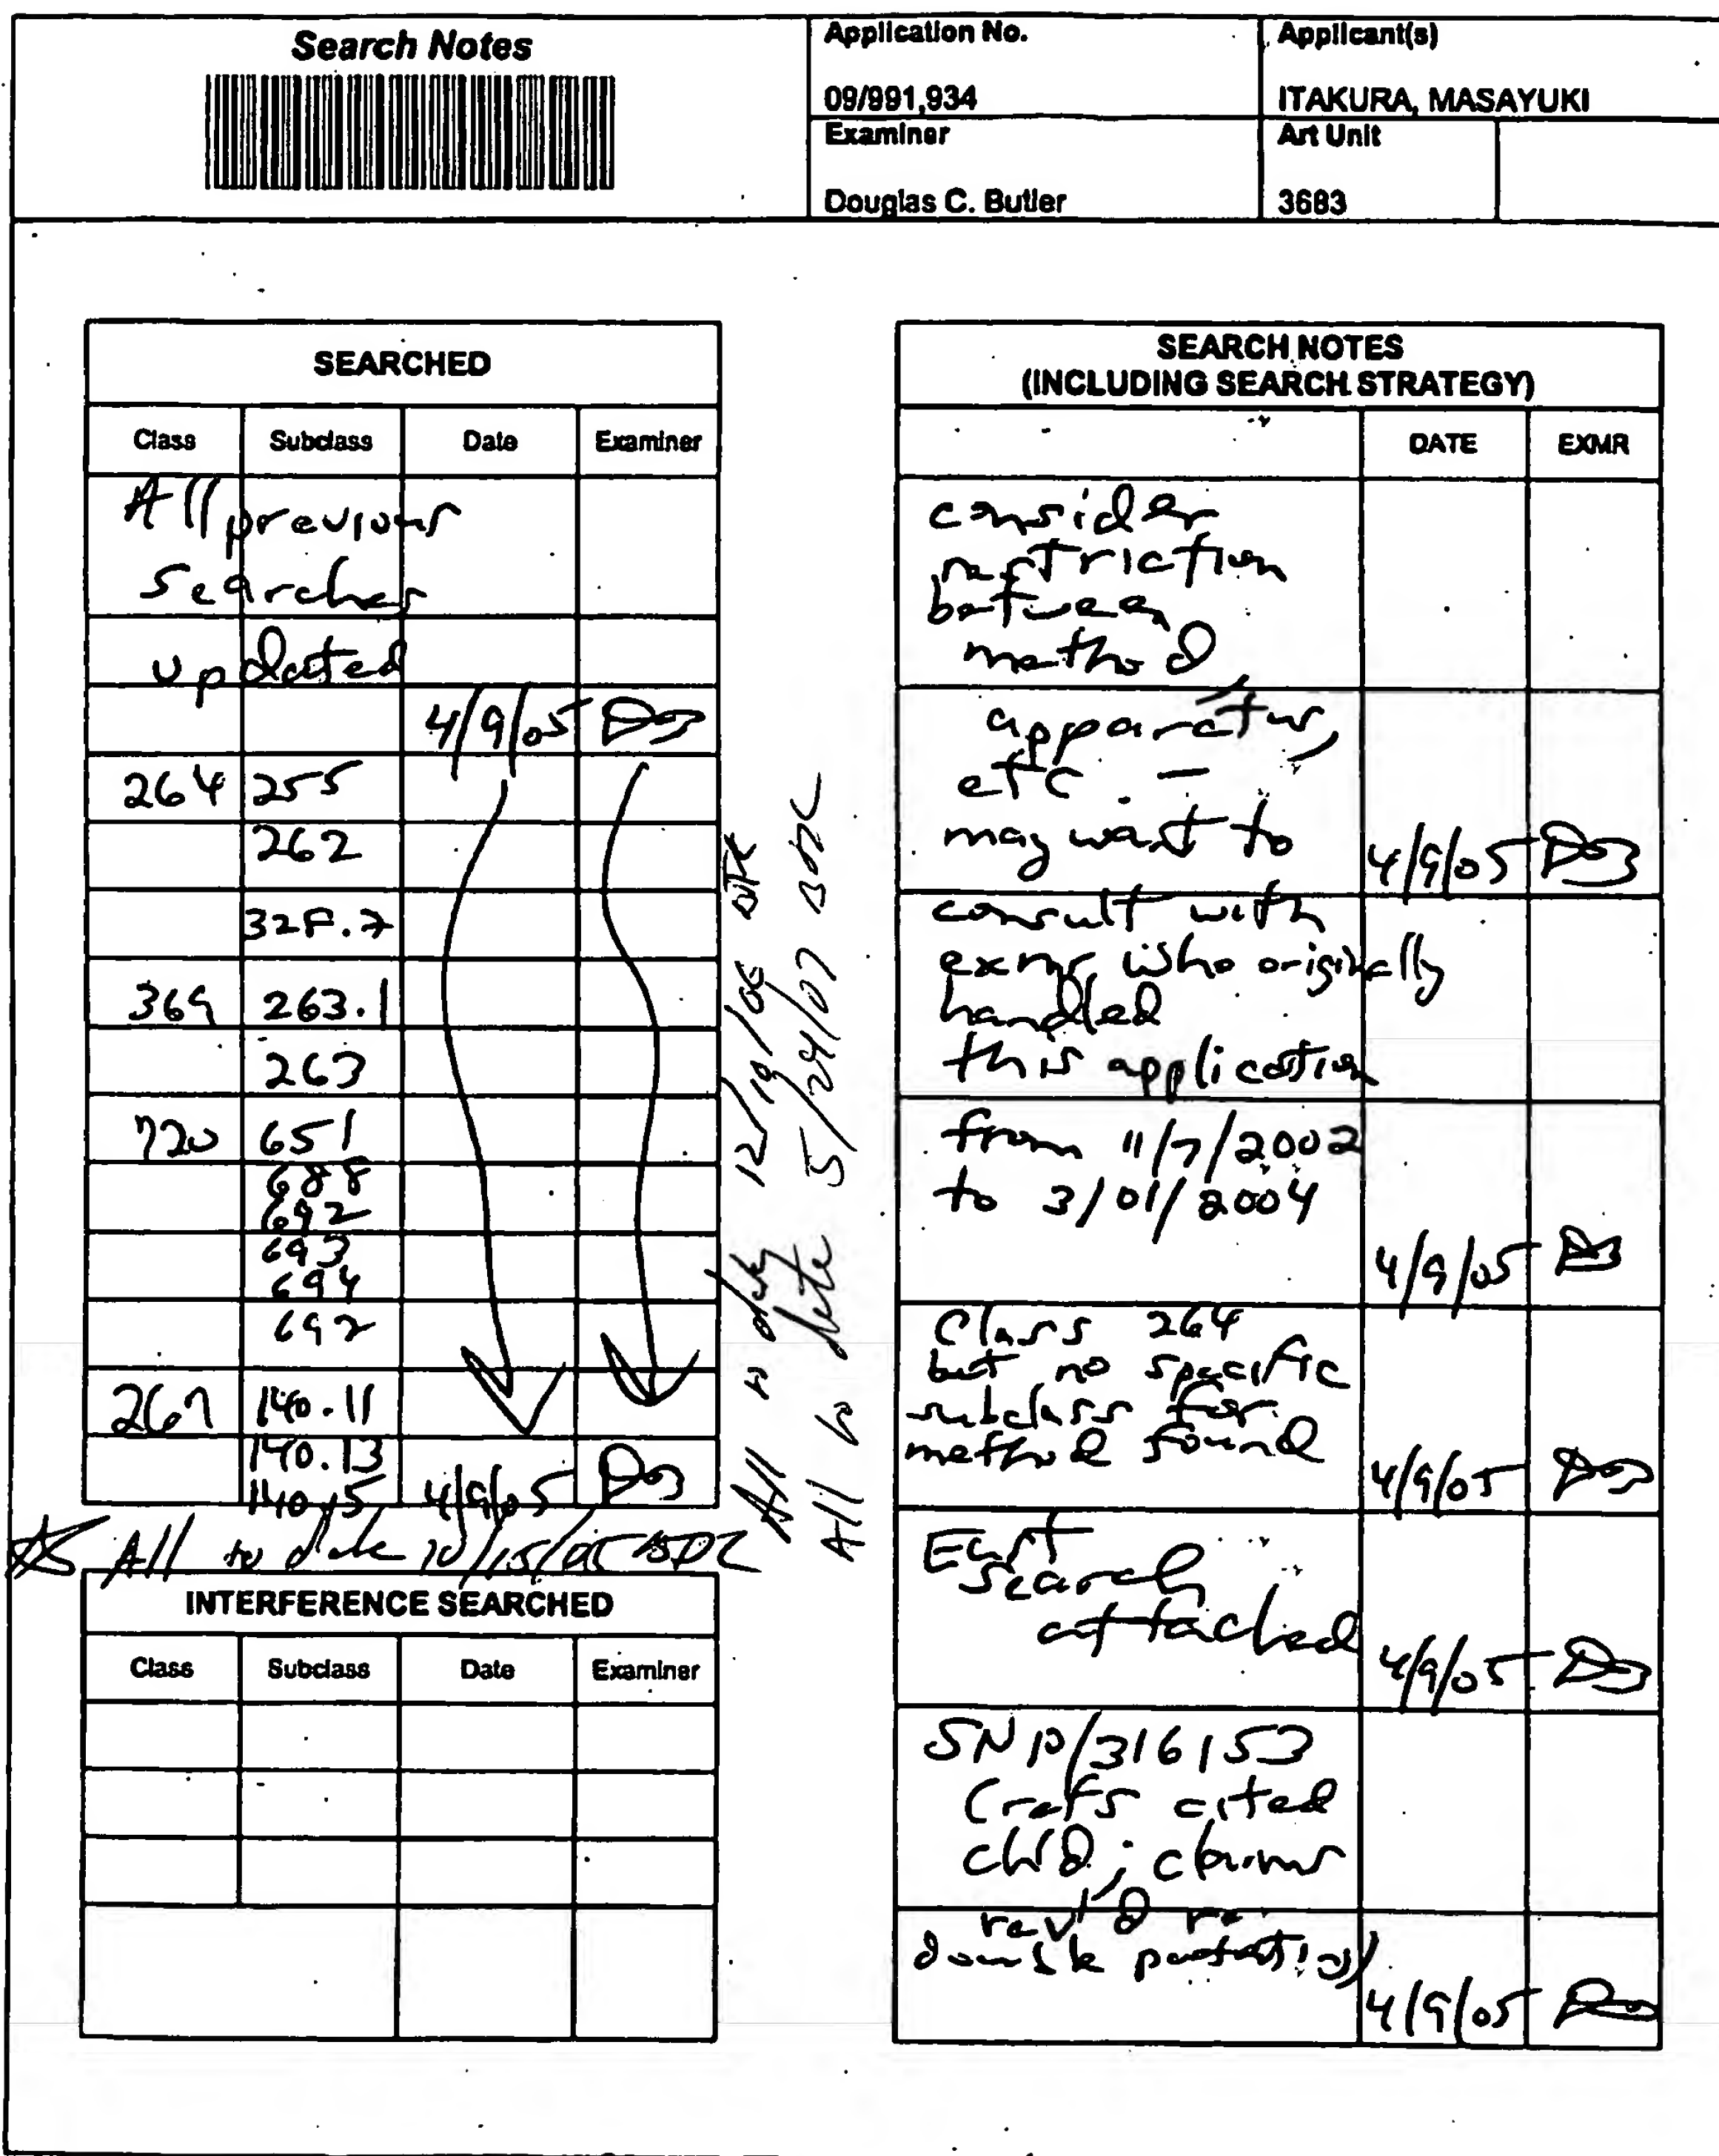 Search Notes
Application No.
09/991,934
Applicant(s)
ITAKURA, MASAYUKI
Examiner
Douglas C. Butler
Art Unit
3683
SEARCHED
Class Subclass Date Examiner
All previous
searches
updated
4/9/05
264 255
262
328.7
369 263.1
263
720 651
688
692
693
694
692
267 140.11
140.13
140.15 4/9/05
All to date 10/15/05
All to date 12/19/06
All to date 5/24/07
INTERFERENCE SEARCHED
Class Subclass Date Examiner
SEARCH NOTES
(INCLUDING SEARCH STRATEGY)
DATE EXMR
consider
restriction
between
method,
apparatus,
etc. —
may want to 4/9/05
consult with
exmr. who originally
handled
this application
from 11/7/2002
to 3/01/2004
4/9/05
Class 264
but no specific
subclass for
method found 4/9/05
East
Search
attached 4/9/05
SN 10/316153
(refs cited
ch'd; claims
rev'd re
double patenting)
4/9/05